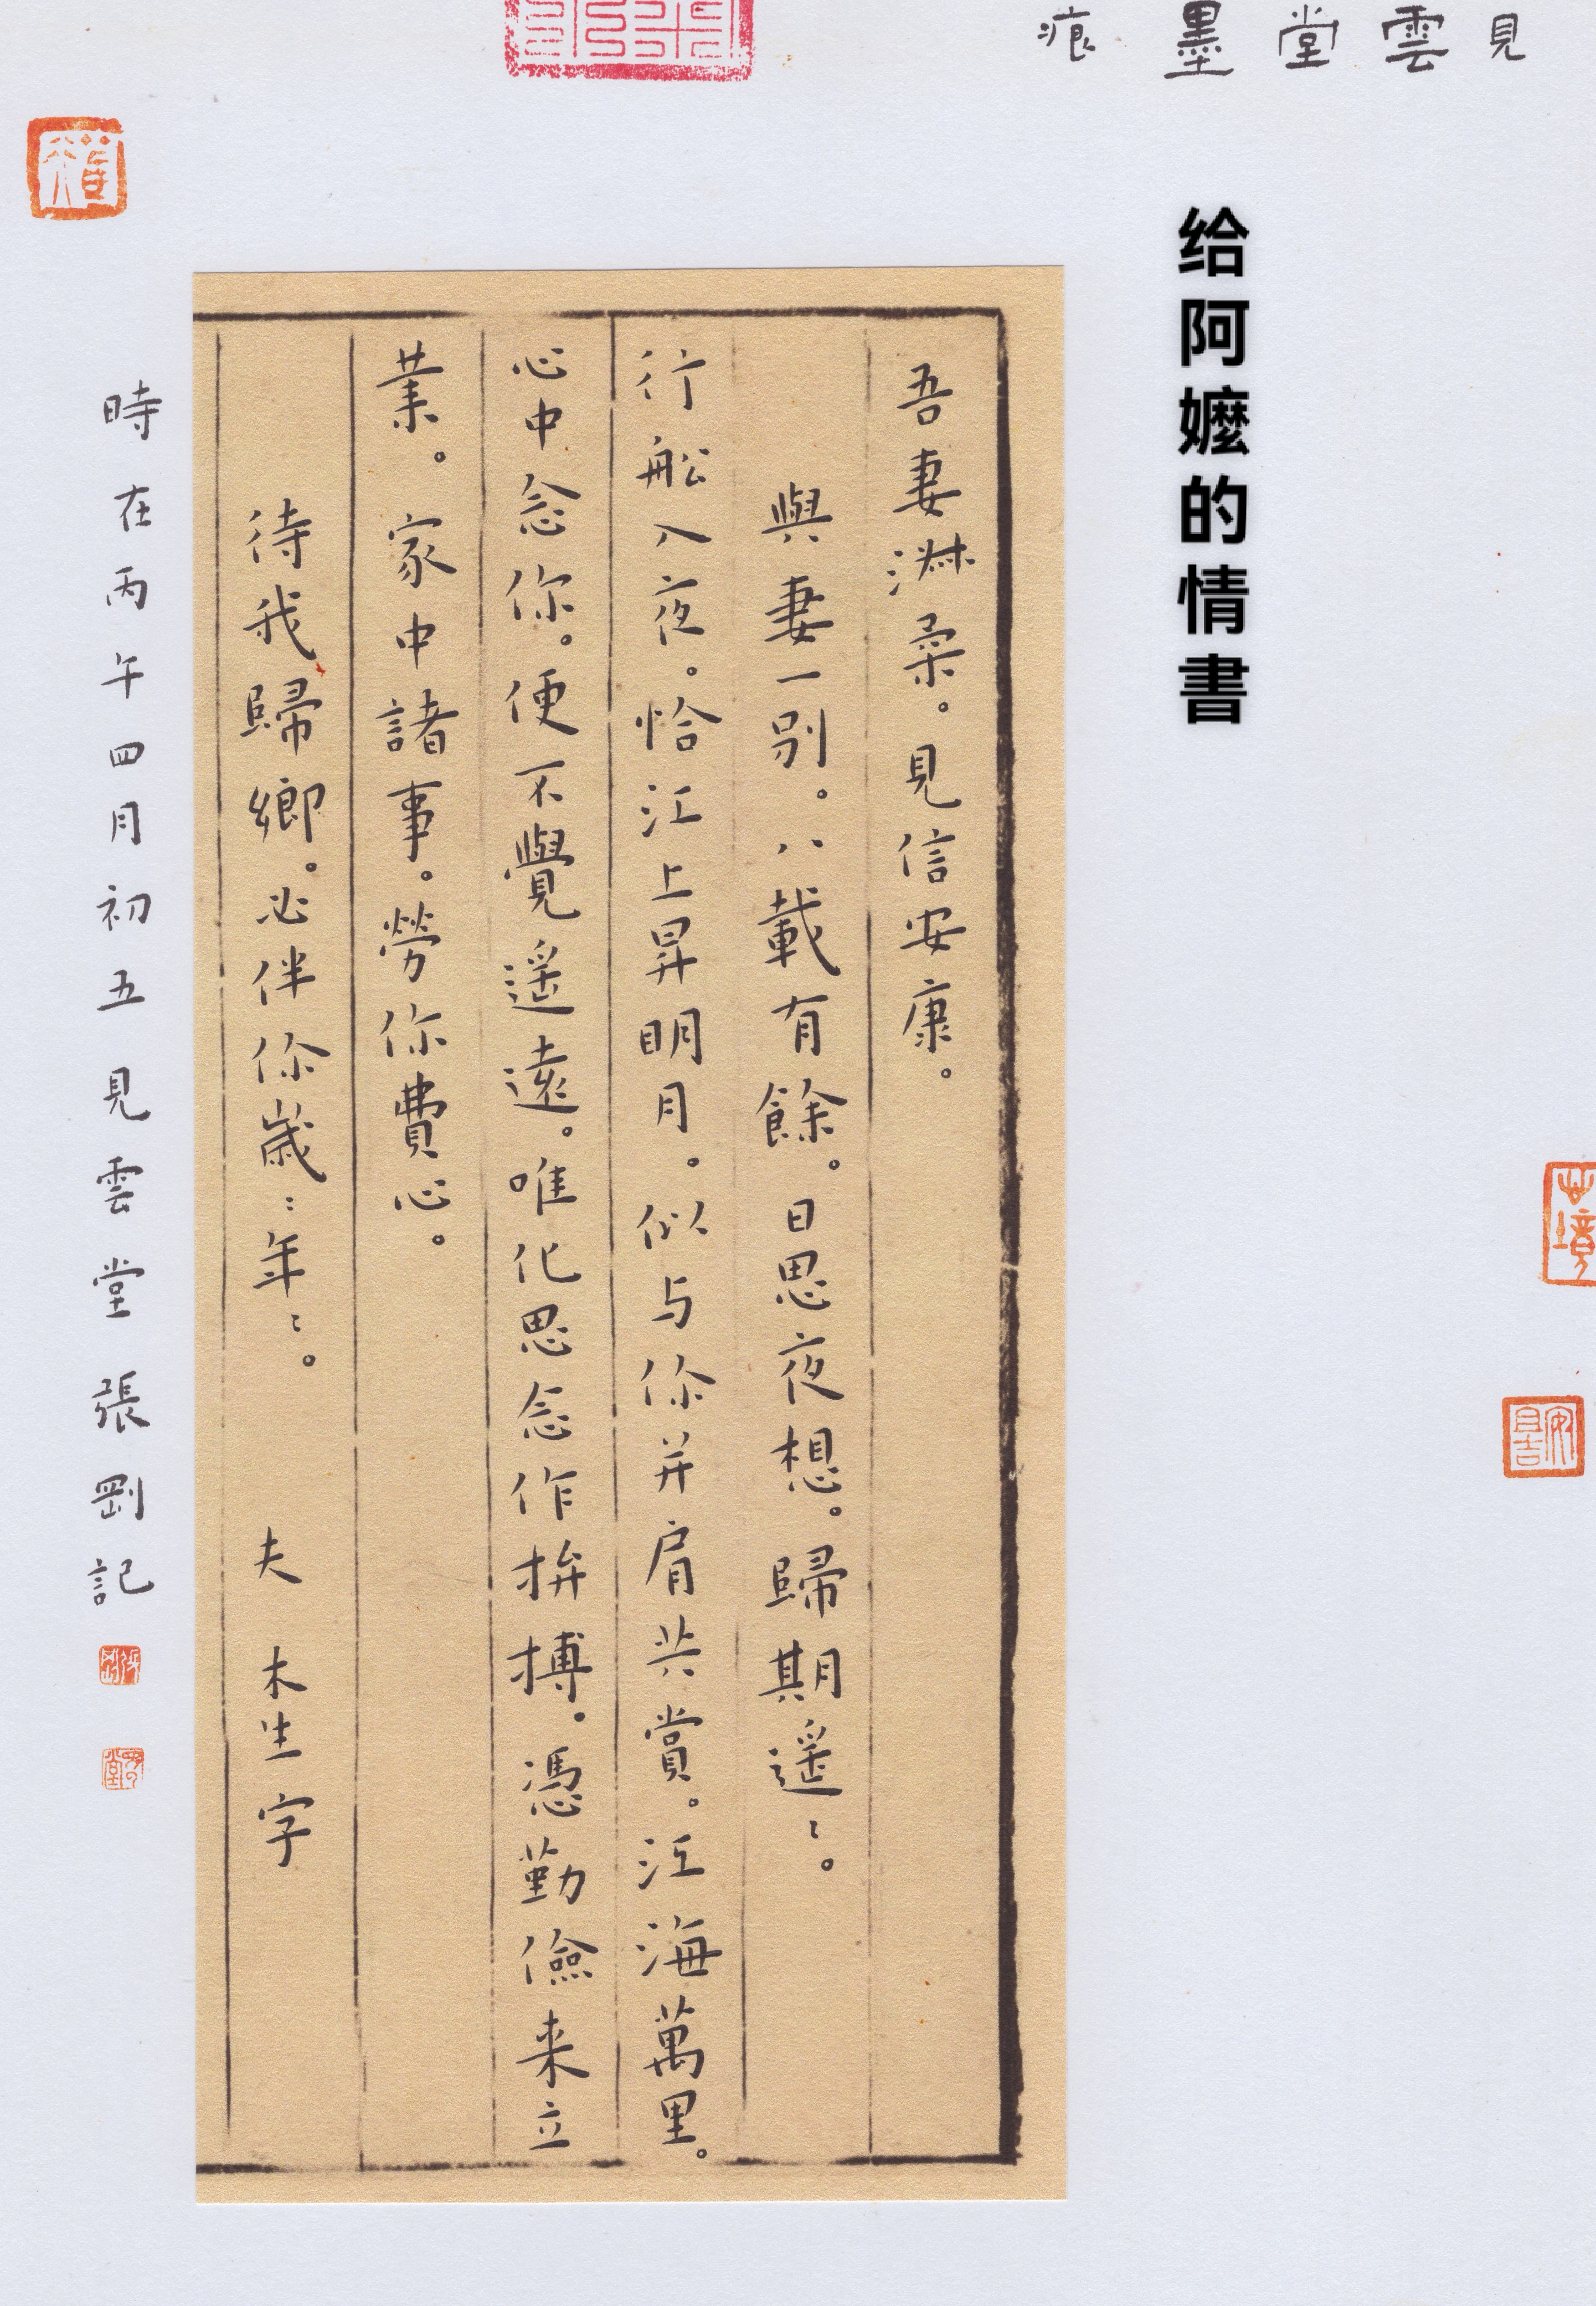 見雲堂墨痕
给阿嬤的情書
吾妻淋柔。見信安康。
與妻一别。八載有餘。日思夜想。歸期遥〻。
行船入夜。恰江上昇明月。似与你并肩共賞。江海萬里。
心中念你。便不覺遥遠。唯化思念作拚搏。憑勤儉来立
業。家中諸事。勞你費心。
待我歸鄉。必伴你歲〻年〻。
夫 木生字
時在丙午四月初五見雲堂張剛記